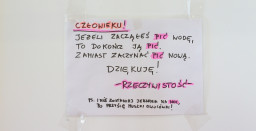 CZŁOWIEKU!
JEŻELI ZACZĄŁEŚ PIĆ WODĘ,
TO DOKOŃCZ JĄ PIĆ.
ZAMIAST ZACZYNAĆ PIĆ NOWĄ.
DZIĘKUJĘ!
-RZECZYWISTOŚĆ-
PS.